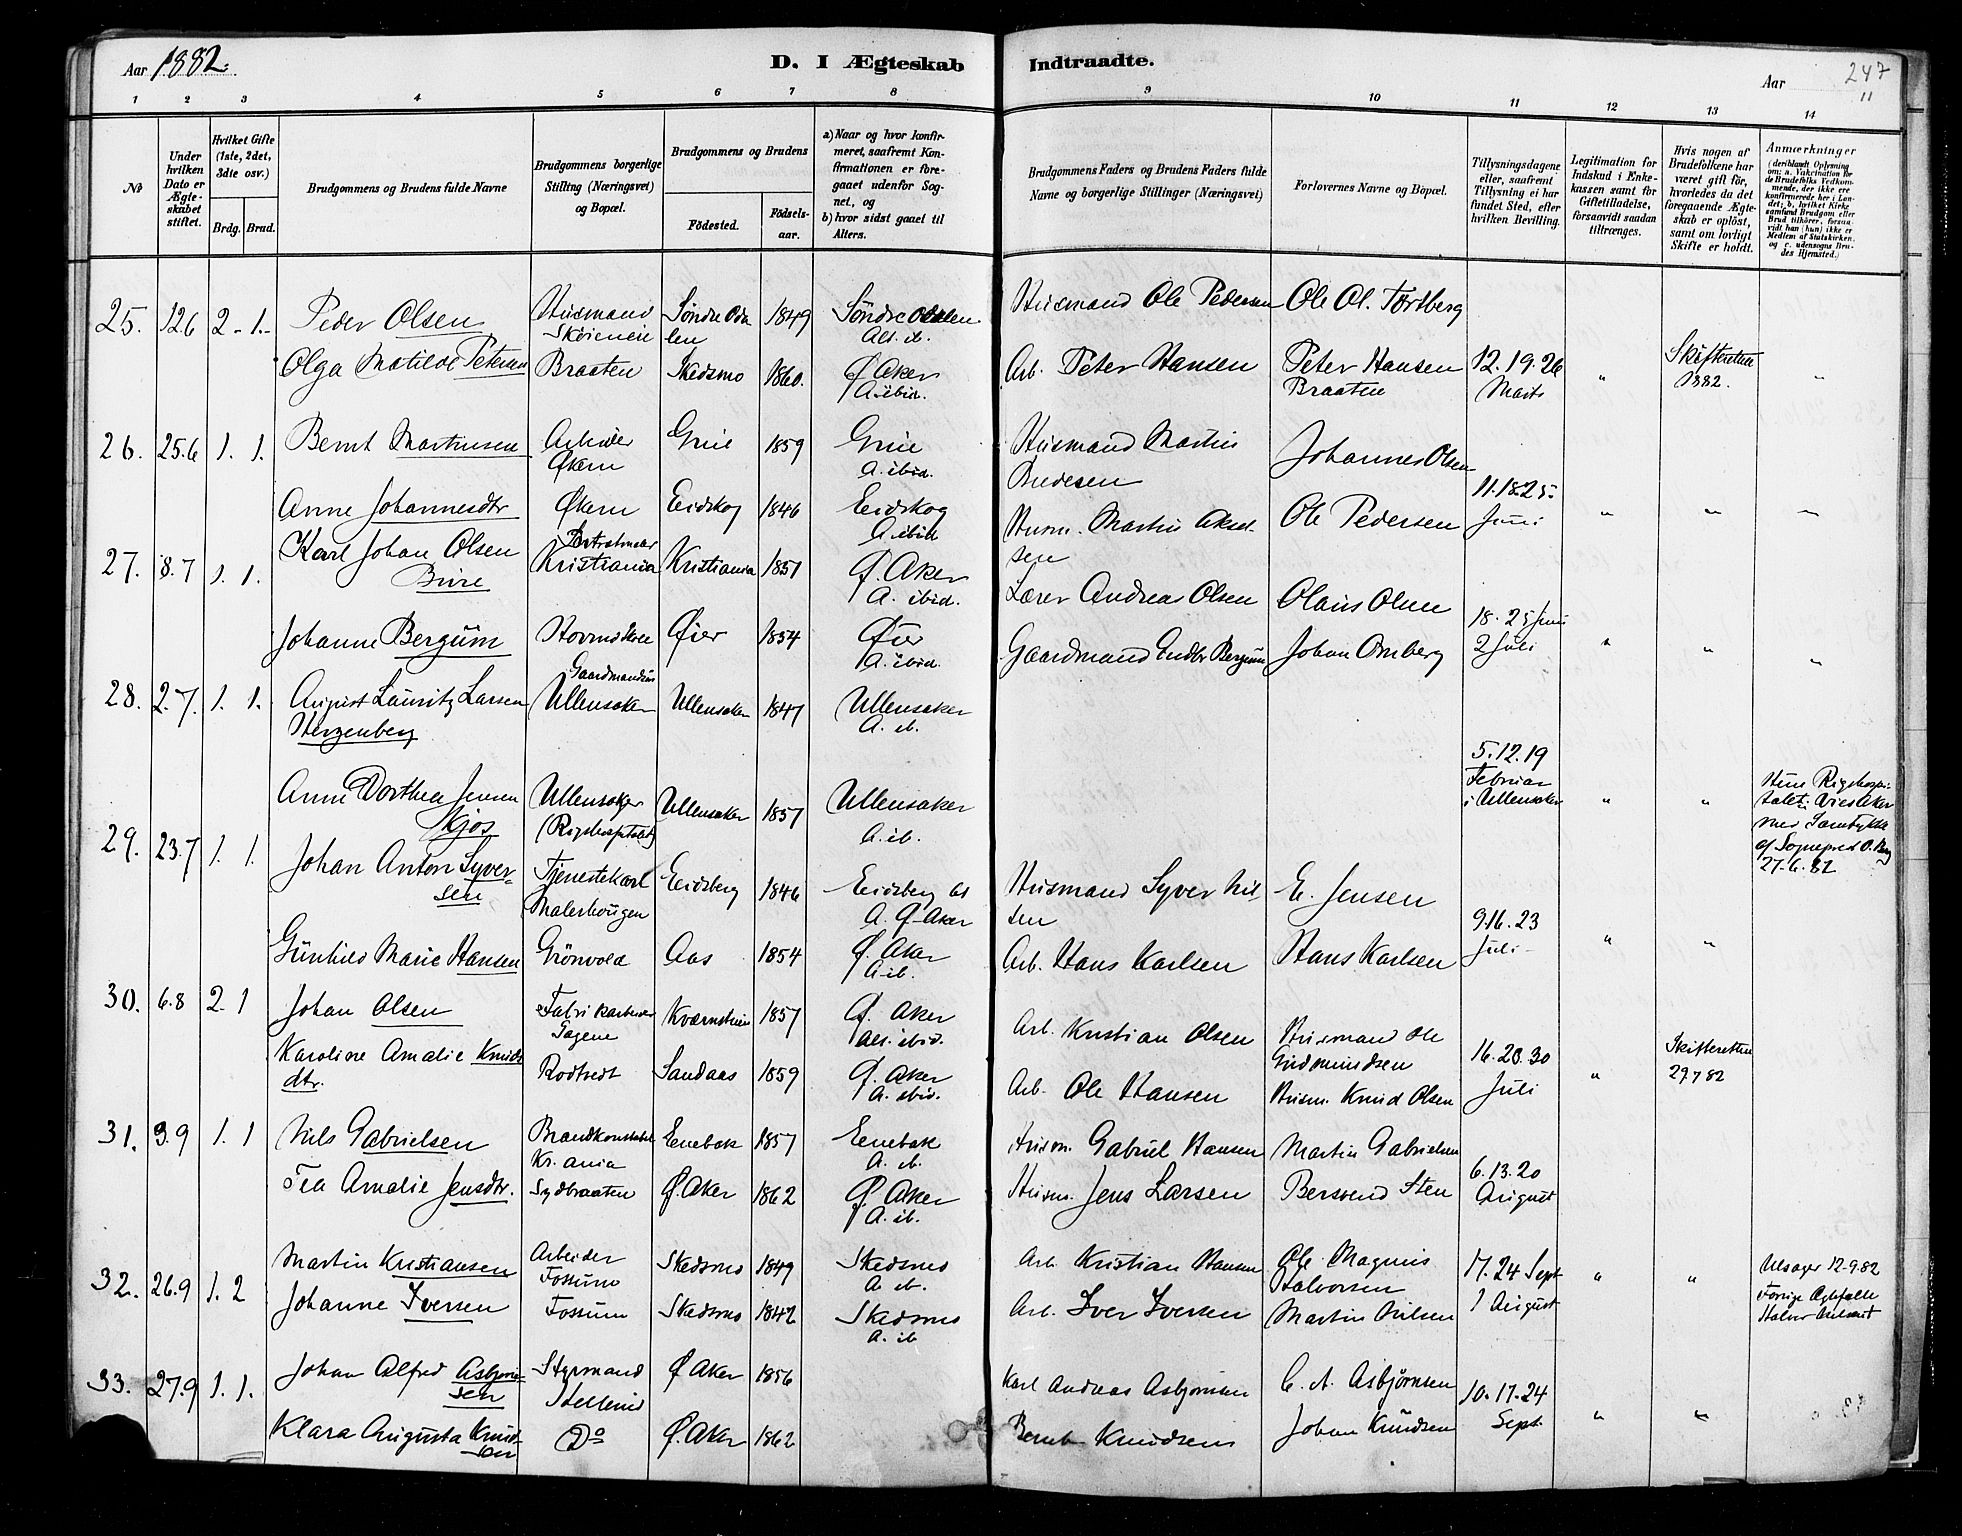 Aar 1882.
D. I Ægteskab Indtraadte.
Aar
247
11
1 2 3 4 5 6 7 8 9 10 11 12 13 14
No
Under hvilken Dato er Ægteskabet stiftet.
Hvilket Gifte (1ste, 2det, 3die osv.)
Brdg. Brud.
Brudgommens og Brudens fulde Navne
Brudgommens borgerlige Stilling (Næringsvei) og Bopæl.
Brudgommens og Brudens
Fødested.
Fødselsaar.
a) Naar og hvor konfirmeret, saafremt Konfirmationen er foregaaet udenfor Sognet, og
b) hvor sidst gaaet til Alters.
Brudgommens Faders og Brudens Faders fulde Navne og borgerlige Stillinger (Næringsvei)
Forlovernes Navne og Bopæl.
Tillysningsdagene eller, saafremt Tillysning ei har fundet Sted, efter hvilken Bevilling.
Legitimation for Indskud i Enkekassen samt for Giftetilladelse, forsaavidt saadan tiltrænges.
Hvis nogen af Brudefolkene har været gift før, hvorledes da det foregaaende Ægteskab er opløst, samt om lovligt Skifte er holdt.
Anmærkninger
(deriblandt Oplysning om: a. Vakcination for de Brudefolks Vedkommende, der ikke ere konfirmerede her i Landet; b. hvilket Kirkesamfund Brudgom eller Brud tilhører, forsaavidt han (hun) ikke er Medlem af Statskirken, og c. udensogns Brudes Hjemsted.)
25. 12.6 2-1.- Peder Olsen Husmand Søndre Oda 1849 Søndre Odalen Husmand Ole Pedersen Ole Ol.
len Alt. ib.
Olga Matilde Petersen Braaten Skedsmo 1860. Ø. Aker Arb. Peter Hansen Peter Hansen 12. 19. 26 " Skifteretten "
A. ibid. Braaten Marts 1882.
26. 25.6 1. 1. Bernt Martinsen Arbeider Grue 1859 Grue Husmand Martin Johannes Olsen
Økern A. ibid. Bredesen
Anne Johannesdtr Økern Eidskog 1846 Eidskog Husm. Martin Ole Pedersen 11. 18. 25. " " "
A. ibid sen Juni
27. 8.7 1. 1. Karl Johan Olsen Kristiania Kristiania 1851 Ø. Aker Lærer Andreas Olsen Olaus Olsen
A. ibid.
Johanne Bergum Øier 1854 Øier Gaardmand Bergum Johan Omberg 18. 25 Juni " " "
A. ibid. 2 Juli
Gaardmandssøn
28. 2.7. 1. 1. August Lauritz Larsen Ullensaker Ullensaker 1847 Ullensaker
Herzenberg A. ib.
Anne Dorthea Jensen Ullensaker Ullensaker 1857 Ullensaker 5. 12. 19 " "
(Rigshospitalet) A. ib. Februar
i Ullensaker
27.6.82
29. 23.7 1. 1. Johan Anton Syver- Tjenestekarl Eidsberg 1846 Eidsberg Husmand Syver Nil- E. Jensen
sen Malerhougen A. Ø. Aker sen
Gunhild Marie Hansen Grønvold Aas 1854 Ø. Aker Arb. Hans Karlsen Hans Karlsen 9. 16. 23 " "
A. ib. Juli
30. 6.8 2. 1 Johan Olsen Fabrikarbeider 1857 Ø. Aker Arb. Kristian Olsen Husmand Ole
Sagene Alt. ibid. Gudmundsen
Karoline Amalie Knuds Rodtvedt Sandaas 1859 Ø. Aker Arb. Ole Hansen Husm. Knud Olsen 16. 23. 30 " Skifteretten
dtr. A. ibid. Juli 29.7 82
31. 3.9 1. 1 Nils Gabrielsen Brandkonstabel Enebak 1857 Enebak Husm. Gabriel Hansen Martin Gabrielsen
Kr. ania A. ib.
Tea Amalie Jensdtr. Sydbraaten Ø. Aker 1862 Ø. Aker Husm. Jens Larsen Bersvend Sten 6. 13. 20
A. ib. August
32. 26.9 1. 2 Martin Kristiansen Arbeider Skedsmo 1849 Skedsmo Arb. Kristian Hansen Ole Magnus 17. 24 Sept " " 12.9.82
Fossum A. ib. Halvorsen
Johanne Iversen Fossum Skedsmo 1842 Skedsmo Arb. Iver Iversen Martin Nilsen 1 August Forrige Ægtefælle
A. ib Halvor
33. 27.9 1. 1. Johan Alfred Asbjørn- Styrmand Ø. Aker 1856 Karl Andreas Asbjørnsen C. A. Asbjørnsen 10. 17. 24
sen
Klara Augusta Knud- Do Ø. Aker 1862 Bernt Knudsen Johan Knudsen Sept. " "
sen